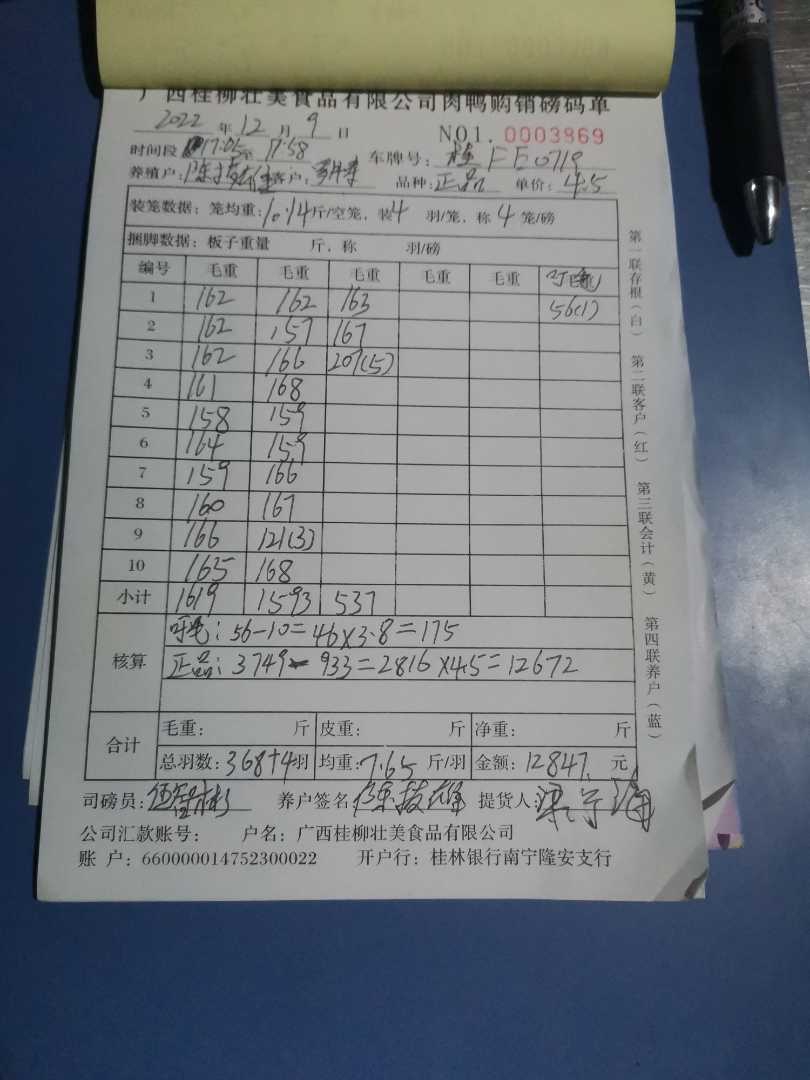 广西桂柳壮美食品有限公司肉鸭购销磅码单
2022 年 12 月 9 日 NO1. 0003869
时间段 17:05至 17:58 车牌号: 桂FE0719
养殖户: 客户: 品种: 正品 单价: 4.5
装笼数据: 笼均重: 10.14斤/空笼, 装4 羽/笼, 称 4 笼/磅
捆脚数据: 板子重量 斤, 称 羽/磅
编号 毛重 毛重 毛重 毛重 毛重
1 162 162 163 56(1)
2 162 157 167
3 162 166 207(5)
4 161 168
5 158 159
6 164 159
7 159 166
8 160 167
9 166 121(3)
10 165 168
小计 1619 1593 537
核算
: 56-10=46×3.8=175
正品: 3749-933=2816×4.5=12672
合计
毛重: 斤 皮重: 斤 净重: 斤
总羽数: 368+4羽 均重: 7.65 斤/羽 金额: 12847. 元
司磅员: 养户签名 提货人:
公司汇款账号: 户名: 广西桂柳壮美食品有限公司
账 户: 660000014752300022 开户行: 桂林银行南宁隆安支行
第一联存根(白) 第二联客户(红) 第三联会计(黄) 第四联养户(蓝)